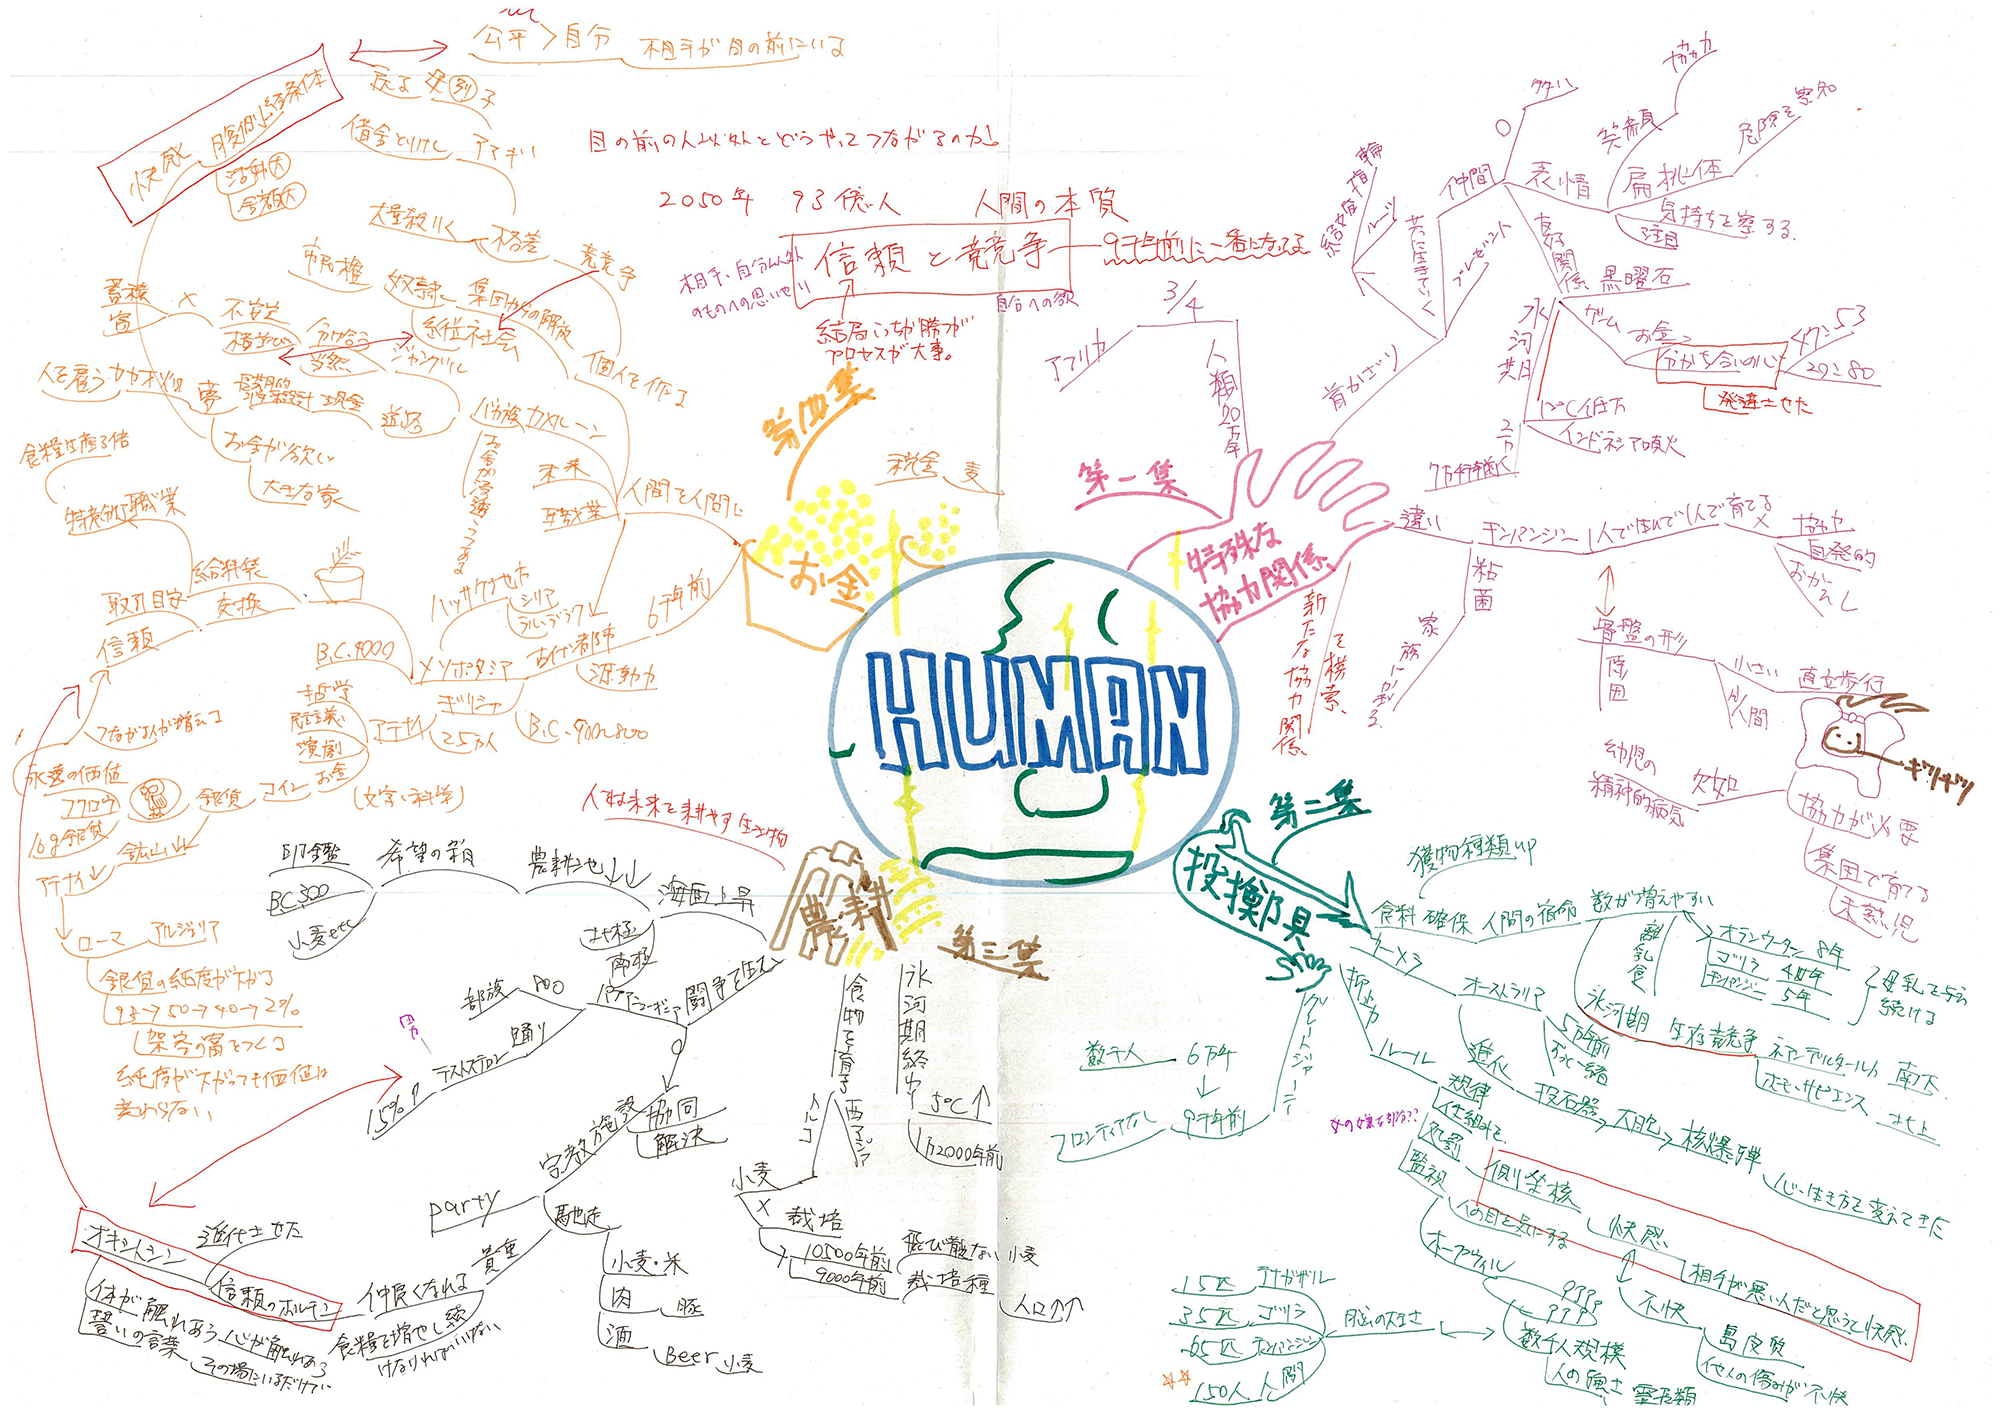 HUMAN
目の前の人以外とどうやってつながるのか!
2050年 93億人 人間の本質
信頼と競争
9千年前に一番になってる
相手、自分以外
のものへの思いやり
自分への欲
結局こっちが勝つが
プロセスが大事。
第一集
特殊な
協力関係
人類20万年
3/4
アフリカ
首かざり
共に生きていく
ルーツ
結婚指輪
プレゼント
仲間
タナハ
表情
笑顔
協力
扁桃体
危険を察知
気持ちを察する
注目
良好関係
黒曜石
氷河期
ゲーム
お金
分かち合いの心
47:53
20:80
発達させた
12℃低下
インドネシア噴火
2万
7万4千年前
違い
チンパンジー
1人で産んで1人で育てる
×
協力
自発的
おかえし
粘菌
家族に限る
新たな協力関係
を模索、
骨盤の形
原因
小さい
直立歩行
人間
ギリギリ
協力が必要
欠如
幼児の
精神的病気
集団で育てる
未熟児
第二集
投擲具
獲物種類up
食料確保
人間の宿命
数が増えやすい
離乳食
オランウータン 8年
ゴリラ 4年
チンパンジー 5年
母乳を与え
続ける
氷河期
生存競争
ネアンデルタール人 南下
ホモ・サピエンス 北上
オーストラリア
5万年前
ずっと一緒
進化
投石器
大砲
核爆弾
心・生き方を変えてきた
抑止力
ルール
規律
仕組み
処罰
監視
側坐核
快感
相手が悪い人だと思うと快感
不快
島皮質
他人の傷みが不快
人の目を気にする
ホープウィル
数千人規模
人の風土
霊長類
脳の大きさ
15匹 テナガザル
35匹 ゴリラ
65匹 チンパンジー
150人 人間
グレートジャーニー
6万年
数千人
9千年前
フロンティアなし
第三集
農耕
人は未来を耕やす生き物
海面上昇
北極
南極
農耕地↓↓
希望の箱
印鑑
BC 500
小麦etc
闘争を生む
パプアニューギニア
800
部族
踊り
テストステロン
男
15%↑
協同
解決
宗教施設
party
馳走
小麦・米
肉
豚
酒
Beer 小麦
貴重
仲良くなれる
食糧を増やし続
けなければいけない
信頼のホルモン
オキシトシン
進化させた
体が触れあう 心が触れあう
誓いの言葉
その場にいるだけで
食物を育る
トルコ
西アジア
小麦
×
栽培
10500年前
9000年前
飛び散ない小麦
栽培種
人口↑↑
氷河期終わり
5℃↑
1万2000年前
第四集
お金
税金
麦
人間を人間に
未来
職業
個人を作る
競争
格差
大量殺りく
アマギ
借金とりけし
戻る
女
子
公平>自分
相手が目の前にいる
快感 腹側線条体
活動大
金額大
集団からの解放
奴隷
市民権
純従社会
ジャングル
分け合う
当然
不安定
横並び
×
蓄積
富
バカ族 カメルーン
お金が浸透しつつある
道路
現金
長期的
人生設計
夢
カカオ畑
人を雇う
お金が欲い
大きな家
6千年前
古代都市
源動力
メソポタミア
B.C.4000
ハッサクさせた
シリア
交換
給料袋
特殊的職業
食糧生産3倍
取引目安
信頼
つながる人が増える
永遠の価値
フクロウ
16g銀貨
ギリシャ
B.C.900~800
アテナイ
25万人
哲学
民主義
演劇
お金
(文字・科学)
コイン
銀貨
鉱山
アテナイ
ローマ
アルジェリア
銀貨の純度が下がる
98→50→40→2%
架空の富をつくる
純度が下がっても価値は
変わらない